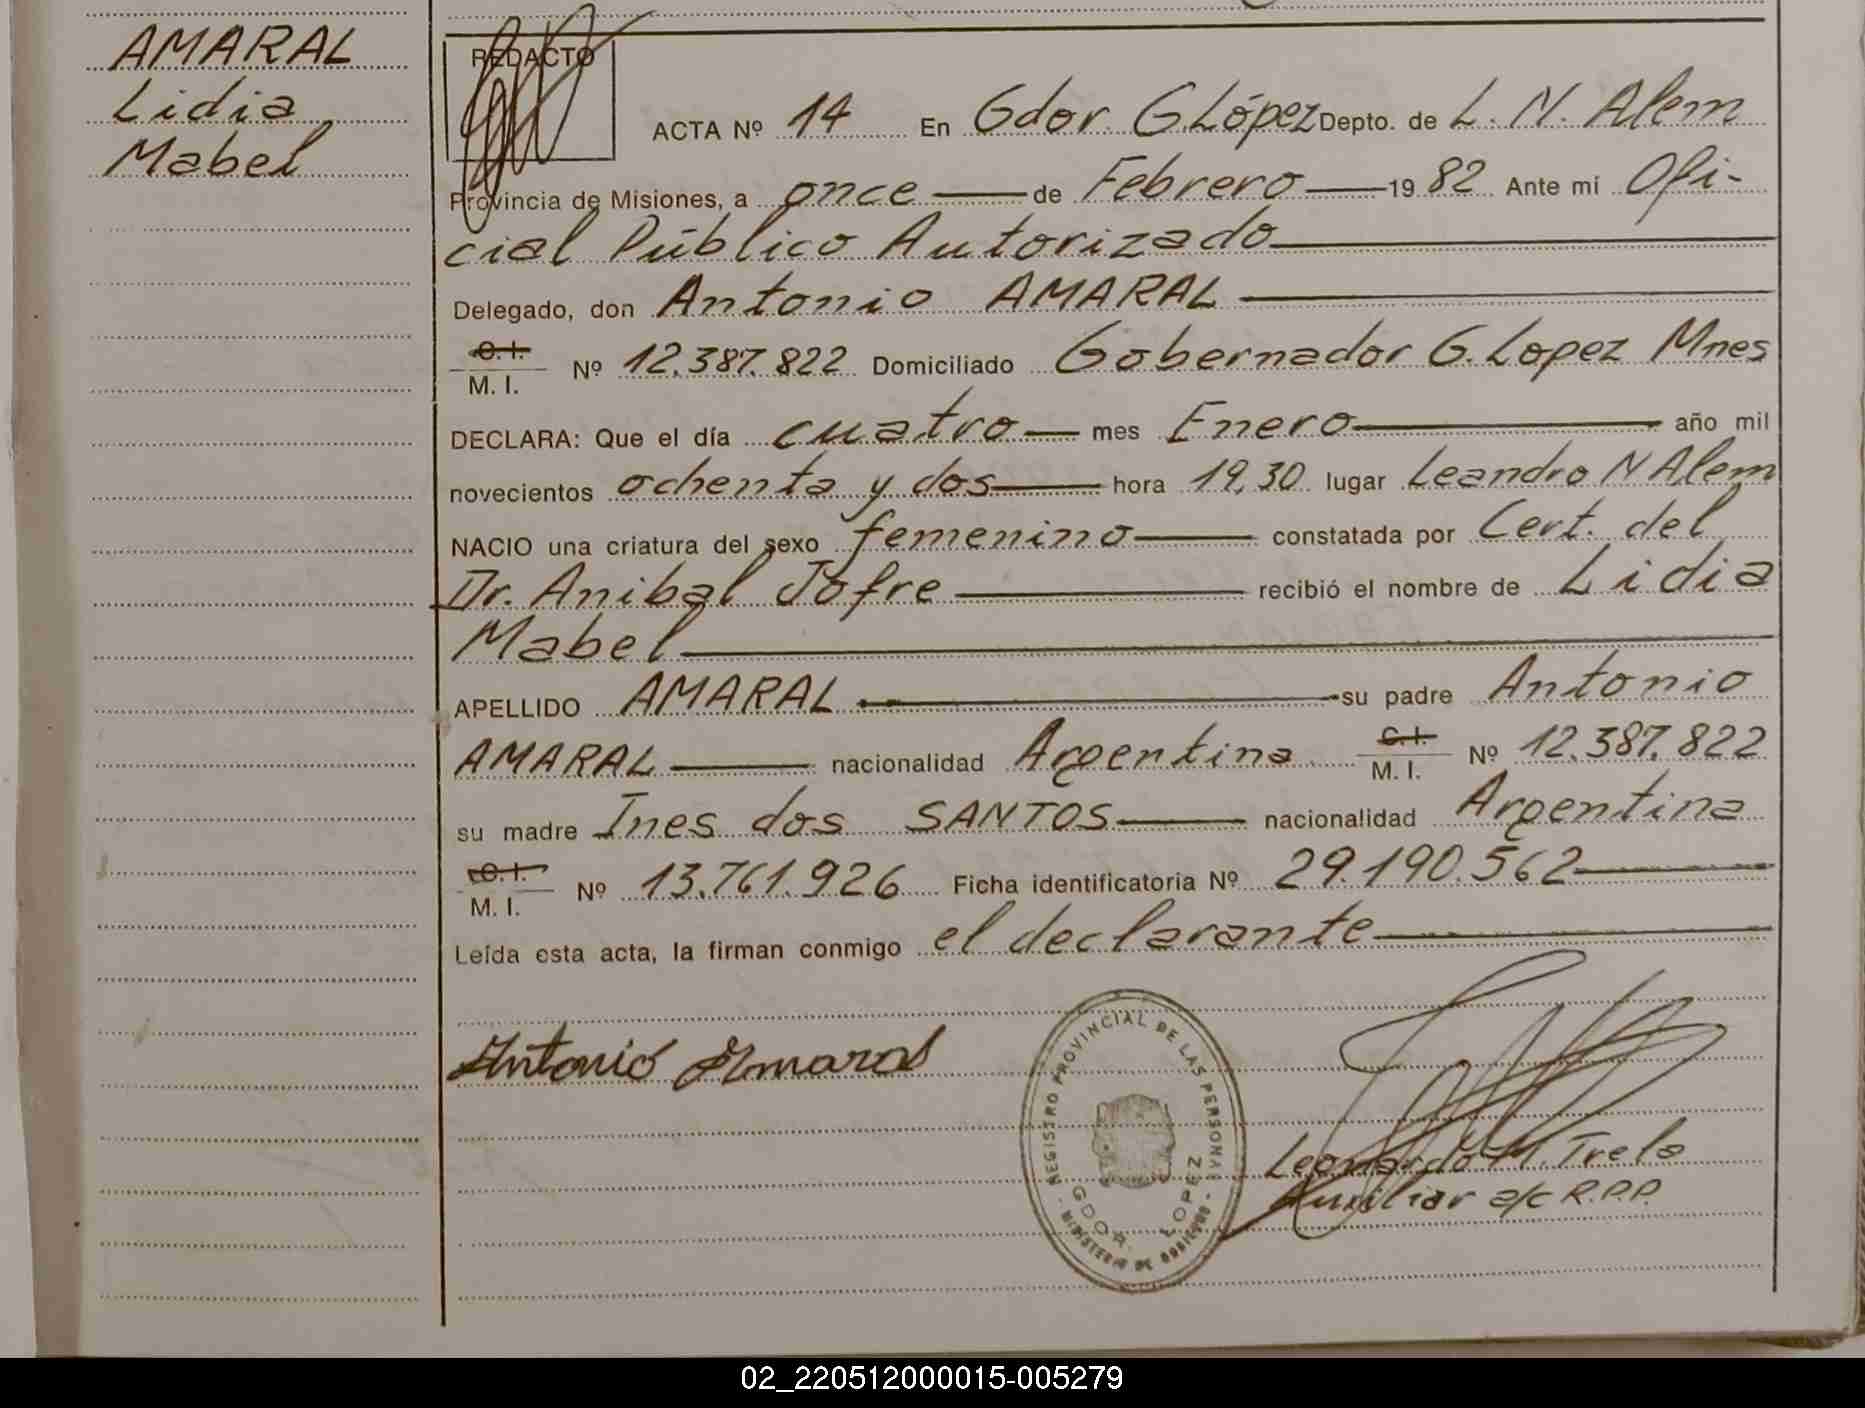 AMARAL
Lidia
Mabel
REDACTO
ACTA Nº 14 En Gdor. G. López Depto. de L. N. Alem
Provincia de Misiones, a once de Febrero 1982 Ante mí Ofi-
cial Público Autorizado
Delegado, don Antonio AMARAL
C. I.
M. I. Nº 12.387.822 Domiciliado Gobernador G. Lopez Mnes
DECLARA: Que el día cuatro mes Enero año mil
novecientos ochenta y dos hora 19,30 lugar Leandro N Alem
NACIO una criatura del sexo femenino constatada por Cert. del
Dr. Anibal Jofre recibió el nombre de Lidia
Mabel
APELLIDO AMARAL su padre Antonio
AMARAL nacionalidad Argentina C. I. M. I. Nº 12.387.822
su madre Ines dos SANTOS nacionalidad Argentina
C. I.
M. I. Nº 13.761.926 Ficha identificatoria Nº 29.190.562
Leída esta acta, la firman conmigo el declarante
Antonio Amaral
REGISTRO PROVINCIAL DE LAS PERSONAS
GDOR. LOPEZ
MINISTERIO DE GOBIERNO
Leonardo M. Trela
Auxiliar a/c R.P.P.
02_220512000015-005279